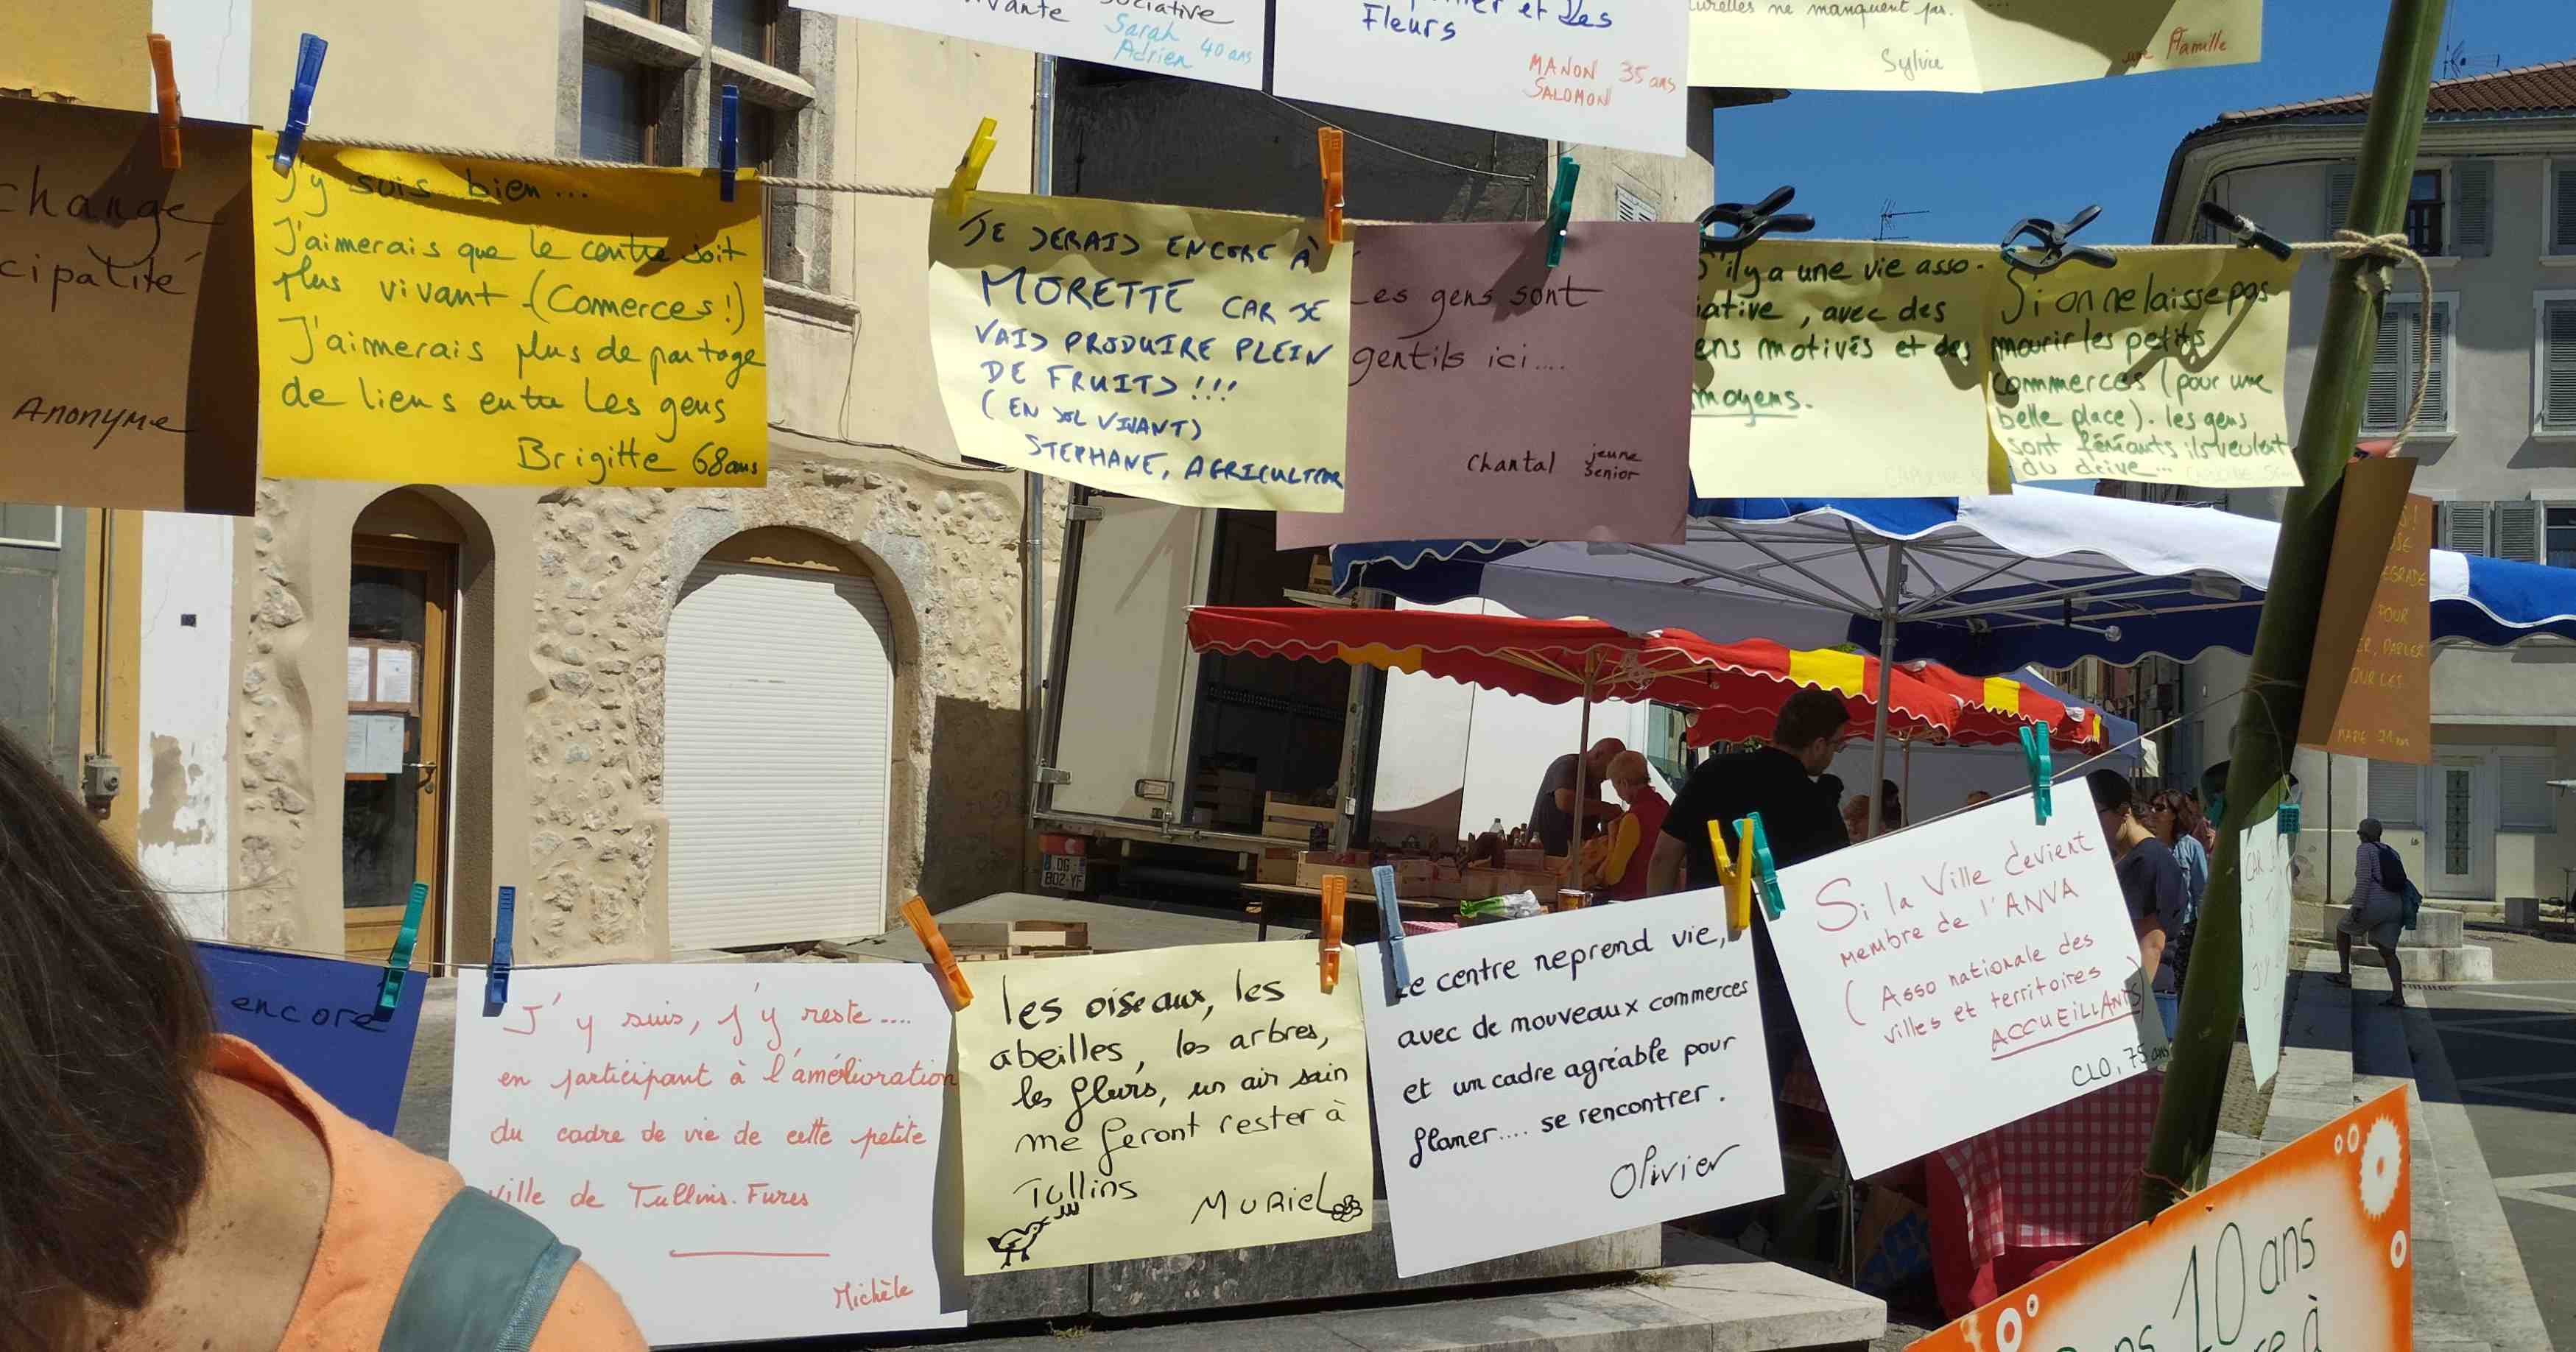 Sarah
Adrien 40 ans
et des
Fleurs
MANON 35 ans
SALOMON
ne manquent pas.
Sylvie
Famille
change
cipalité
Anonyme
J'y suis bien...
J'aimerais que le centre soit
plus vivant (Comerces!)
J'aimerais plus de partage
de liens entre les gens
Brigitte 68 ans
JE SERAIS ENCORE À
MORETTE CAR JE
VAIS PRODUIRE PLEIN
DE FRUITS !!!
(EN SOL VIVANT)
STEPHANE, AGRICULTEUR
Les gens sont
gentils ici....
Chantal jeune
senior
S'il y a une vie asso-
iative, avec des
ens motivés et des
moyens.
Si on ne laisse pas
mourir les petits
commerces (pour une
belle place). les gens
sont fénéants ils veulent
du drive...
POUR
encore
J'y suis, j'y reste....
en participant à l'amélioration
du cadre de vie de cette petite
ville de Tullins. Fures
Michèle
les oiseaux, les
abeilles, les arbres,
les fleurs, un air sain
me feront rester à
Tullins
MURIEL
Le centre reprend vie,
avec de nouveaux commerces
et un cadre agréable pour
flaner.... se rencontrer.
Olivier
Si la Ville devient
membre de l'ANVA
(Asso nationale des
villes et territoires
ACCUEILLANTS)
CLO, 75 ans
10 ans
à
DG
802-YF